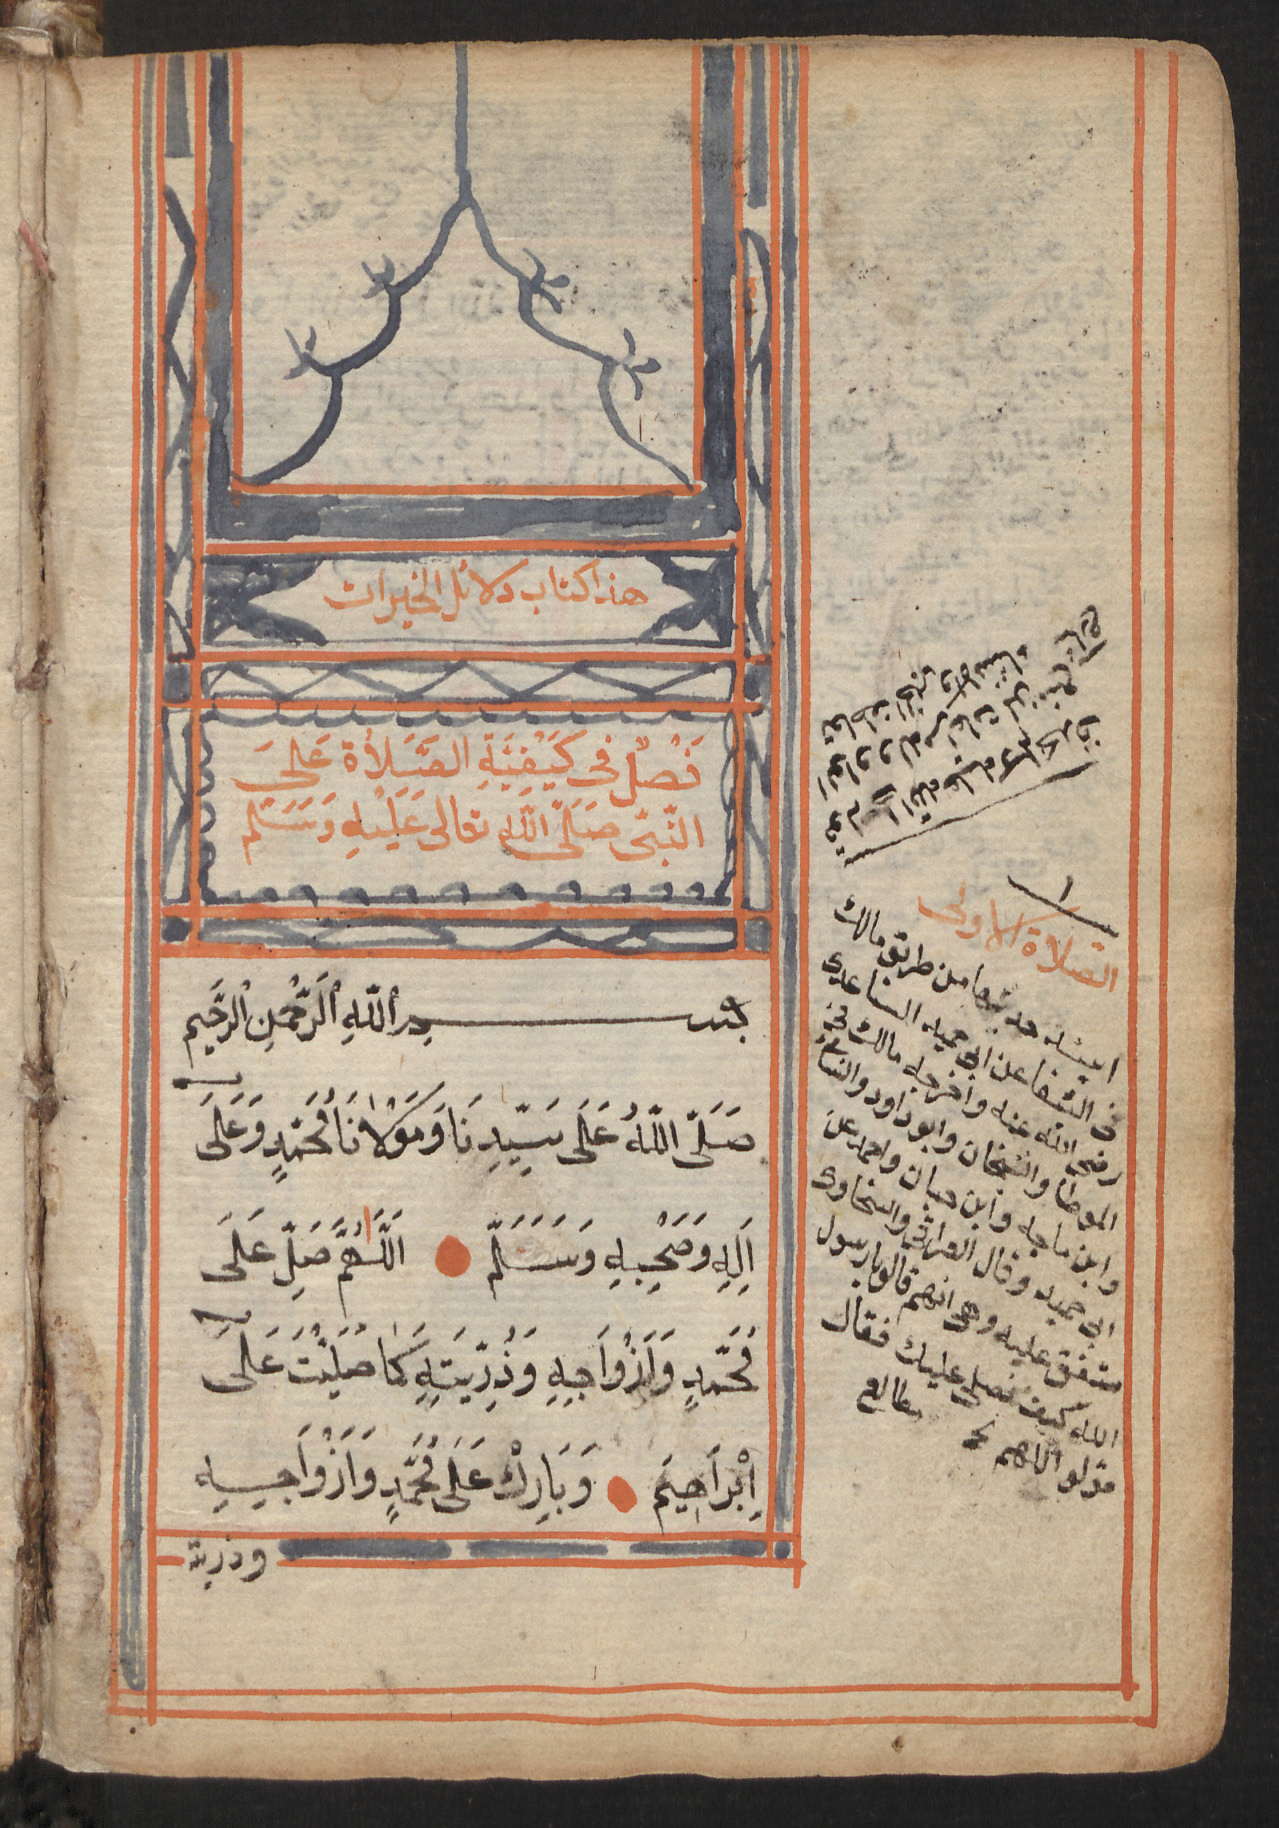 هذا كتاب دلائل الخيرات
فَصْلٌ فِى كَيْفِيَّةِ الصَّلَاةِ عَلَى
النَّبِىِّ صَلَّى اللّٰهُ تعالى عَلَيْهِ وَسَلَّم
بسم اللّٰهِ الرَّحْمٰنِ الرَّحِيمِ
صَلَّى اللّٰهُ عَلَى سَيِّدِنَا وَمَوْلَانَا مُحَمَّدٍ وَعَلَى
اٰلِهِ وَصَحْبِهِ وَسَلَّمَ اَللّٰهُمَّ صَلِّ عَلَى
مُحَمَّدٍ وَاَزْوَاجِهِ وَذُرِّيَّتِهِ كَمَا صَلَيْتَ عَلَى
اِبْرَاهِيمَ وَبَارِكْ عَلَى مُحَمَّدٍ وَاَزْوَاجِهِ
وذرية
١
الصلاة الاولى
حديثها من طريق مالك
فى الشفا عن ابى حميد الساعدى
رضى الله عنه واخرجه مالك فى
الموطا والشيخان وابو داود والنسائى
وابن ماجه وابن حبان واحمد عن
ابى حميد وقال العراقى والسخاوى
متفق عليه وهى انهم قالوا يارسول
الله كيف نصلى عليك فقال
قولو اللهم